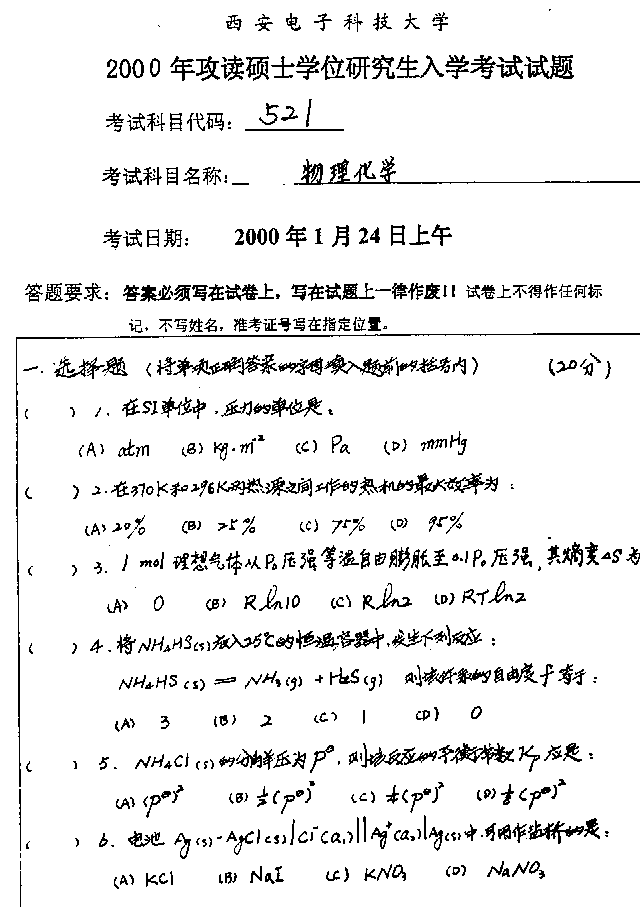 西安电子科技大学
2000年攻读硕士学位研究生入学考试试题
考试科目代码: 521
考试科目名称: 物理化学
考试日期: 2000年1月24日上午
答题要求: 答案必须写在试卷上, 写在试题上一律作废!! 试卷上不得作任何标
记, 不写姓名, 准考证号写在指定位置。
一. 选择题 (将单项正确答案的字母填入题前的括号内) (20分)
( ) 1. 在SI单位中, 压力的单位是:
(A) atm (B) kg·m⁻² (C) Pa (D) mmHg
( ) 2. 在370K和296K两热源之间工作的热机的最大效率为:
(A) 20% (B) 25% (C) 75% (D) 95%
( ) 3. 1 mol 理想气体从P₀压强等温自由膨胀至0.1P₀压强, 其熵变ΔS为
(A) 0 (B) Rln10 (C) Rln2 (D) RTln2
( ) 4. 将NH₄HS(s)放入25℃的恒温容器中, 发生下列反应:
NH₄HS(s) = NH₃(g) + H₂S(g) 则该体系的自由度f等于:
(A) 3 (B) 2 (C) 1 (D) 0
( ) 5. NH₄Cl(s)的分解压为P^θ, 则该反应的平衡常数Kp应是:
(A) (P^θ)² (B) ½(P^θ)² (C) ¼(P^θ)² (D) ⅛(P^θ)²
( ) 6. 电池 Ag(s)-AgCl(s)|Cl⁻(a₁)||Ag⁺(a₂)|Ag(s)中, 可用作盐桥的是:
(A) KCl (B) NaI (C) KNO₃ (D) NaNO₃